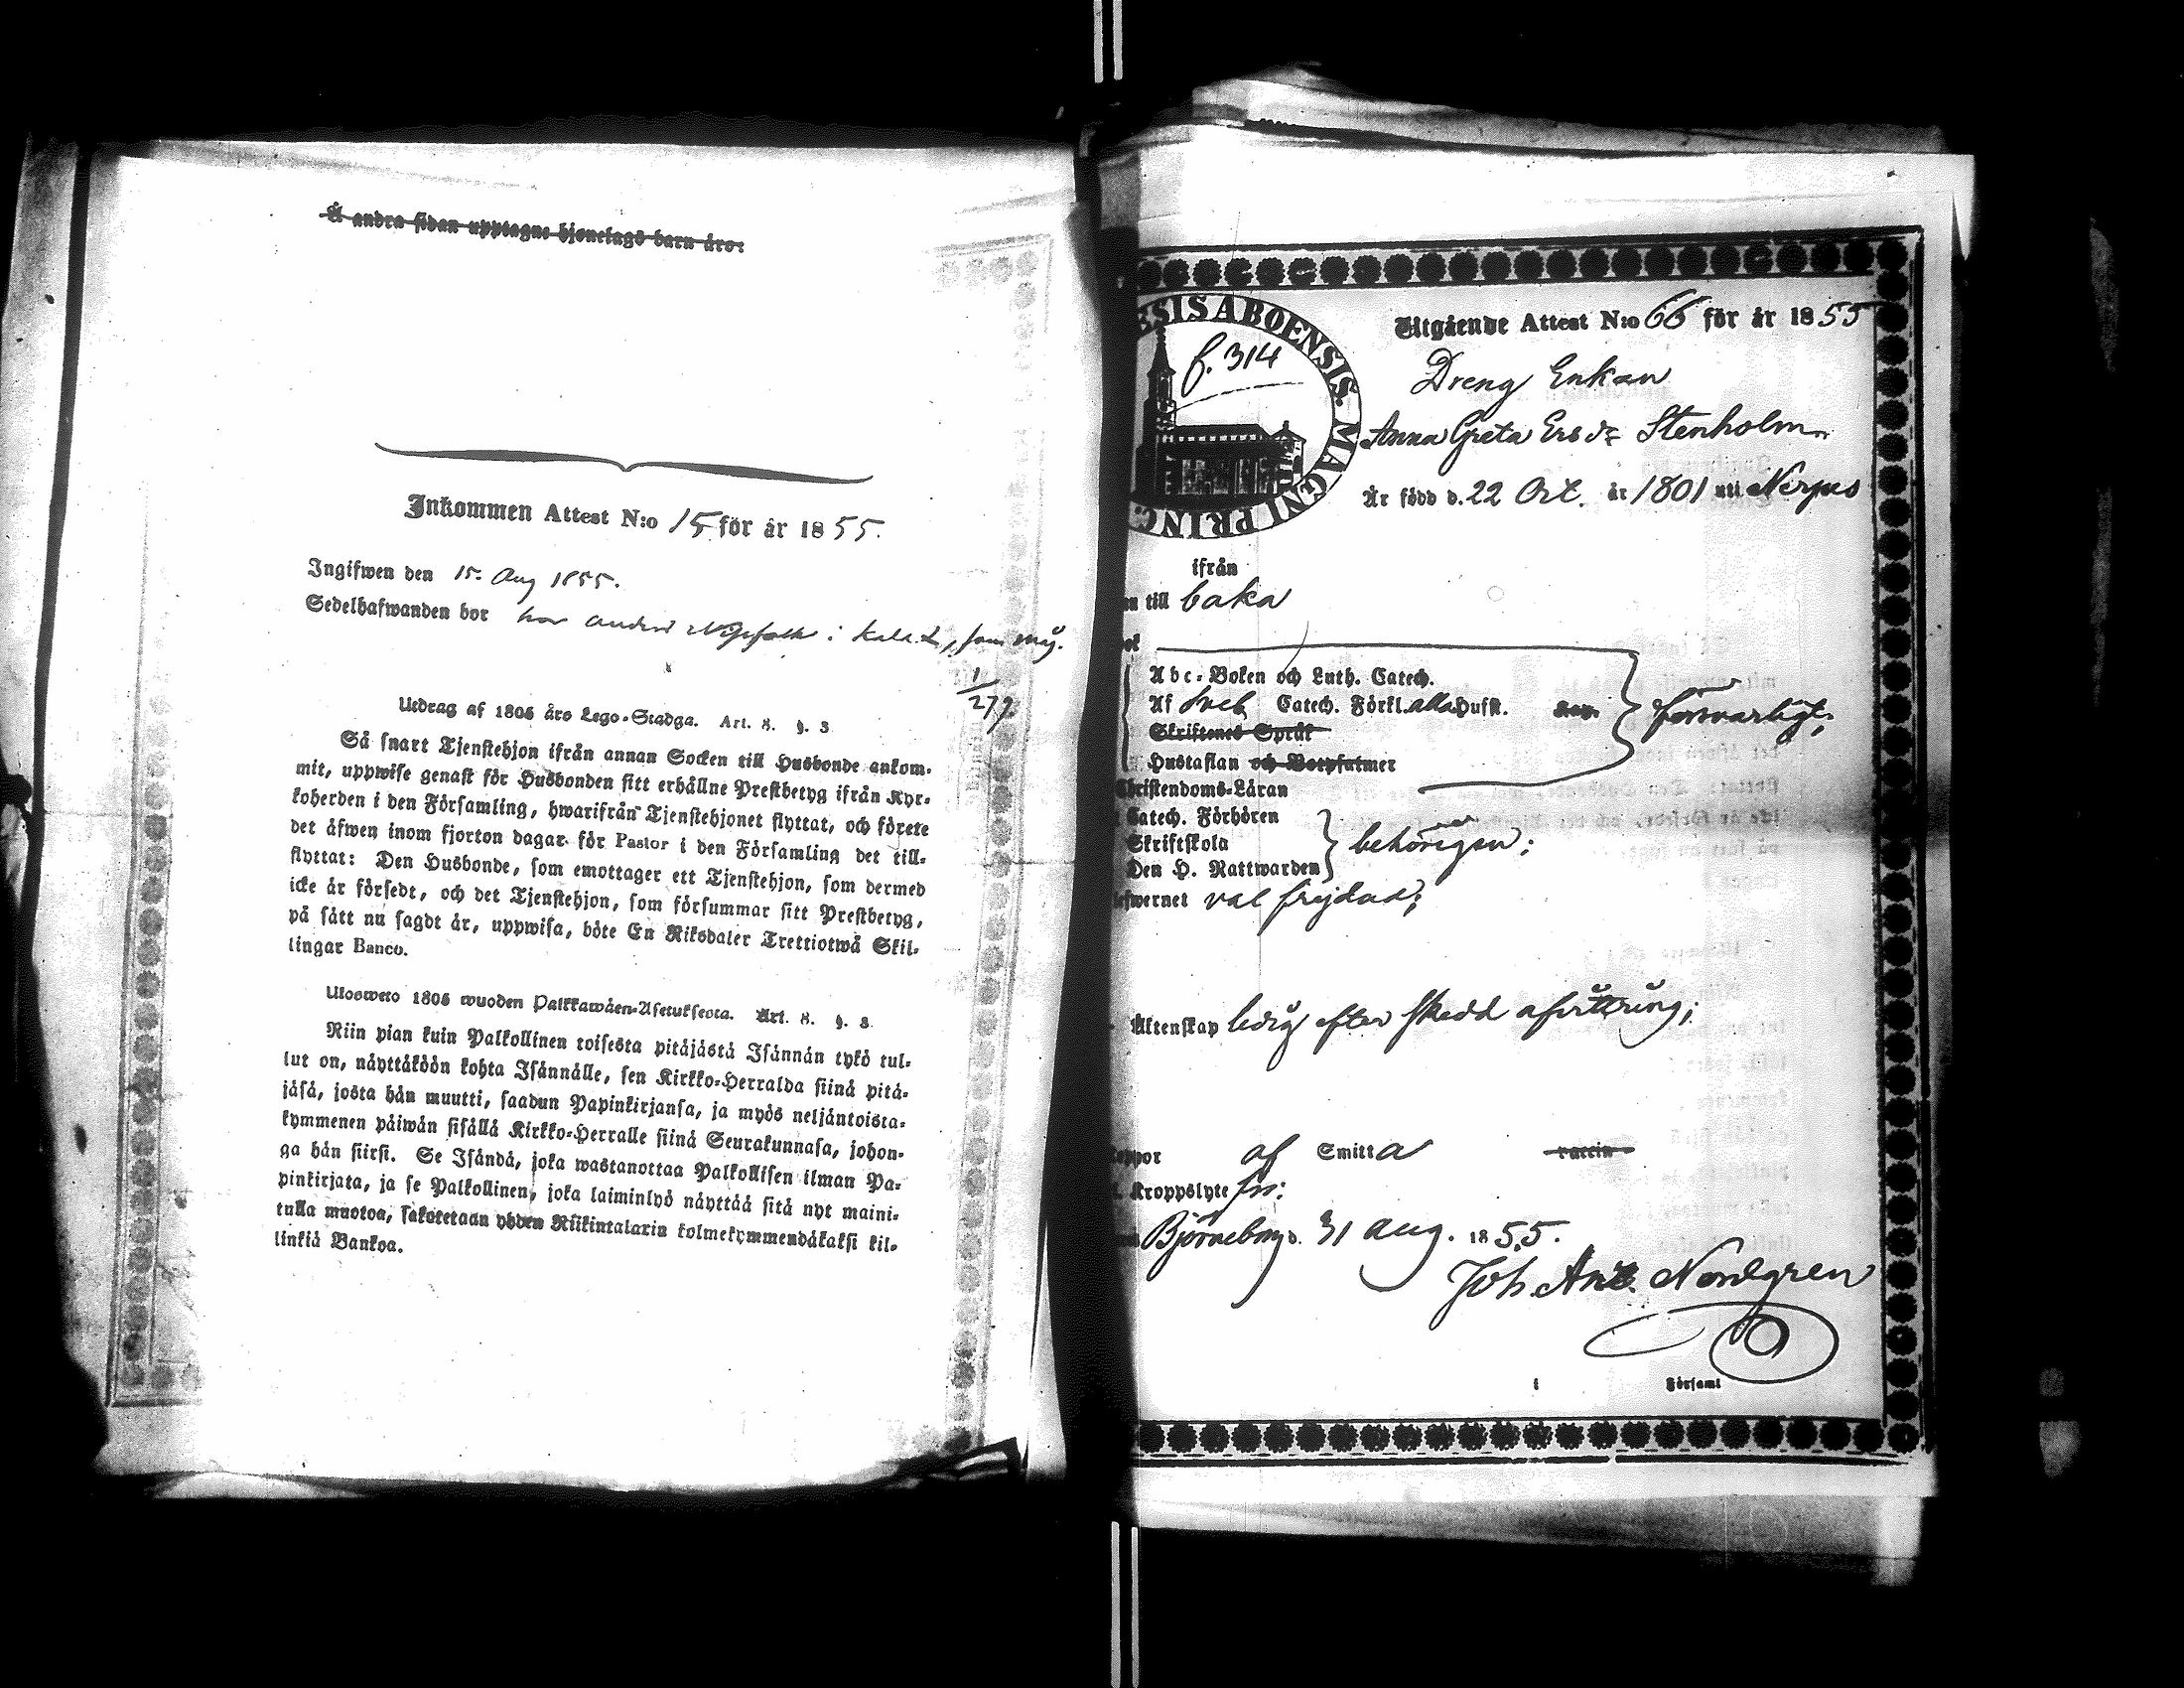 Å andra sidan upptagne hjonelags barn äro:
Inkommen Attest N:o 15 för år 1855.
Ingifwen den 15. Aug 1855.
Sedelhafwanden bor hos i
1/279
Utdrag af 1805 års Lego-Stadga. Art. 8. §. 3
Så snart Tjenstehjon ifrån annan Socken till Husbonde ankom-
mit, uppwise genast för Husbonden sitt erhållne Prestbetyg ifrån Kyr-
koherden i den Församling, hwarifrån Tjenstehjonet flyttat, och förete
det äfwen inom fjorton dagar för Pastor i den Församling det till-
flyttat: Den Husbonde, som emottager ett Tjenstehjon, som dermed
icke är försedt, och det Tjenstehjon, som försummar sitt Prestbetyg,
på sätt nu sagdt är, uppwisa, böte En Riksdaler Trettiotwå Skil-
lingar Banco.
Ulosweto 1805 wuoden Palkkawäen-Asetuksesta. Art. 8. §. 3.
Niin pian kuin Palkollinen toisesta pitäjästä Isännän tykö tul-
lut on, näyttäköön kohta Isännälle, sen Kirkko-Herralda siinä pitä-
jäsä, josta hän muutti, saadun Papinkirjansa, ja myös neljäntoista-
kymmenen päiwän sisällä Kirkko-Herralle siinä Seurakunnasa, johon-
ga hän siirsi. Se Isändä, joka wastanottaa Palkollisen ilman Pa-
pinkirjata, ja se Palkollinen, joka laiminlyö näyttää sitä nyt maini-
tulla muotoa, sakotetaan yhden Riikintalarin kolmekymmendäkaksi kil-
linkiä Bankoa.
ESIS ABOENSIS. MAGNI PRINC
f. 314
Utgående Attest N:o 66 för år 1855
Dreng Enkan
Anna Greta Ersdr Stenholm
Är född d. 22 Oct. år 1801 uti Nerpes
ifrån
till baka
Abc-Boken och Luth. Catech.
Af Sveb Catech. Förkl. alla Hufst. förswarligt;
Skriftenes Språk
Hustaflan och Botpsalmer
Christendoms-Läran
Catech. Förhören
Skriftskola behörigen;
Den H. Nattwarden
lefwernet väl frejdad;
Äktenskap ledig efter skedd afvittring;
Koppor af Smitta vaccin
Kroppslyte fri;
Björneborg d. 31 Aug. 1855.
Joh. And. Nordgren
i Församl